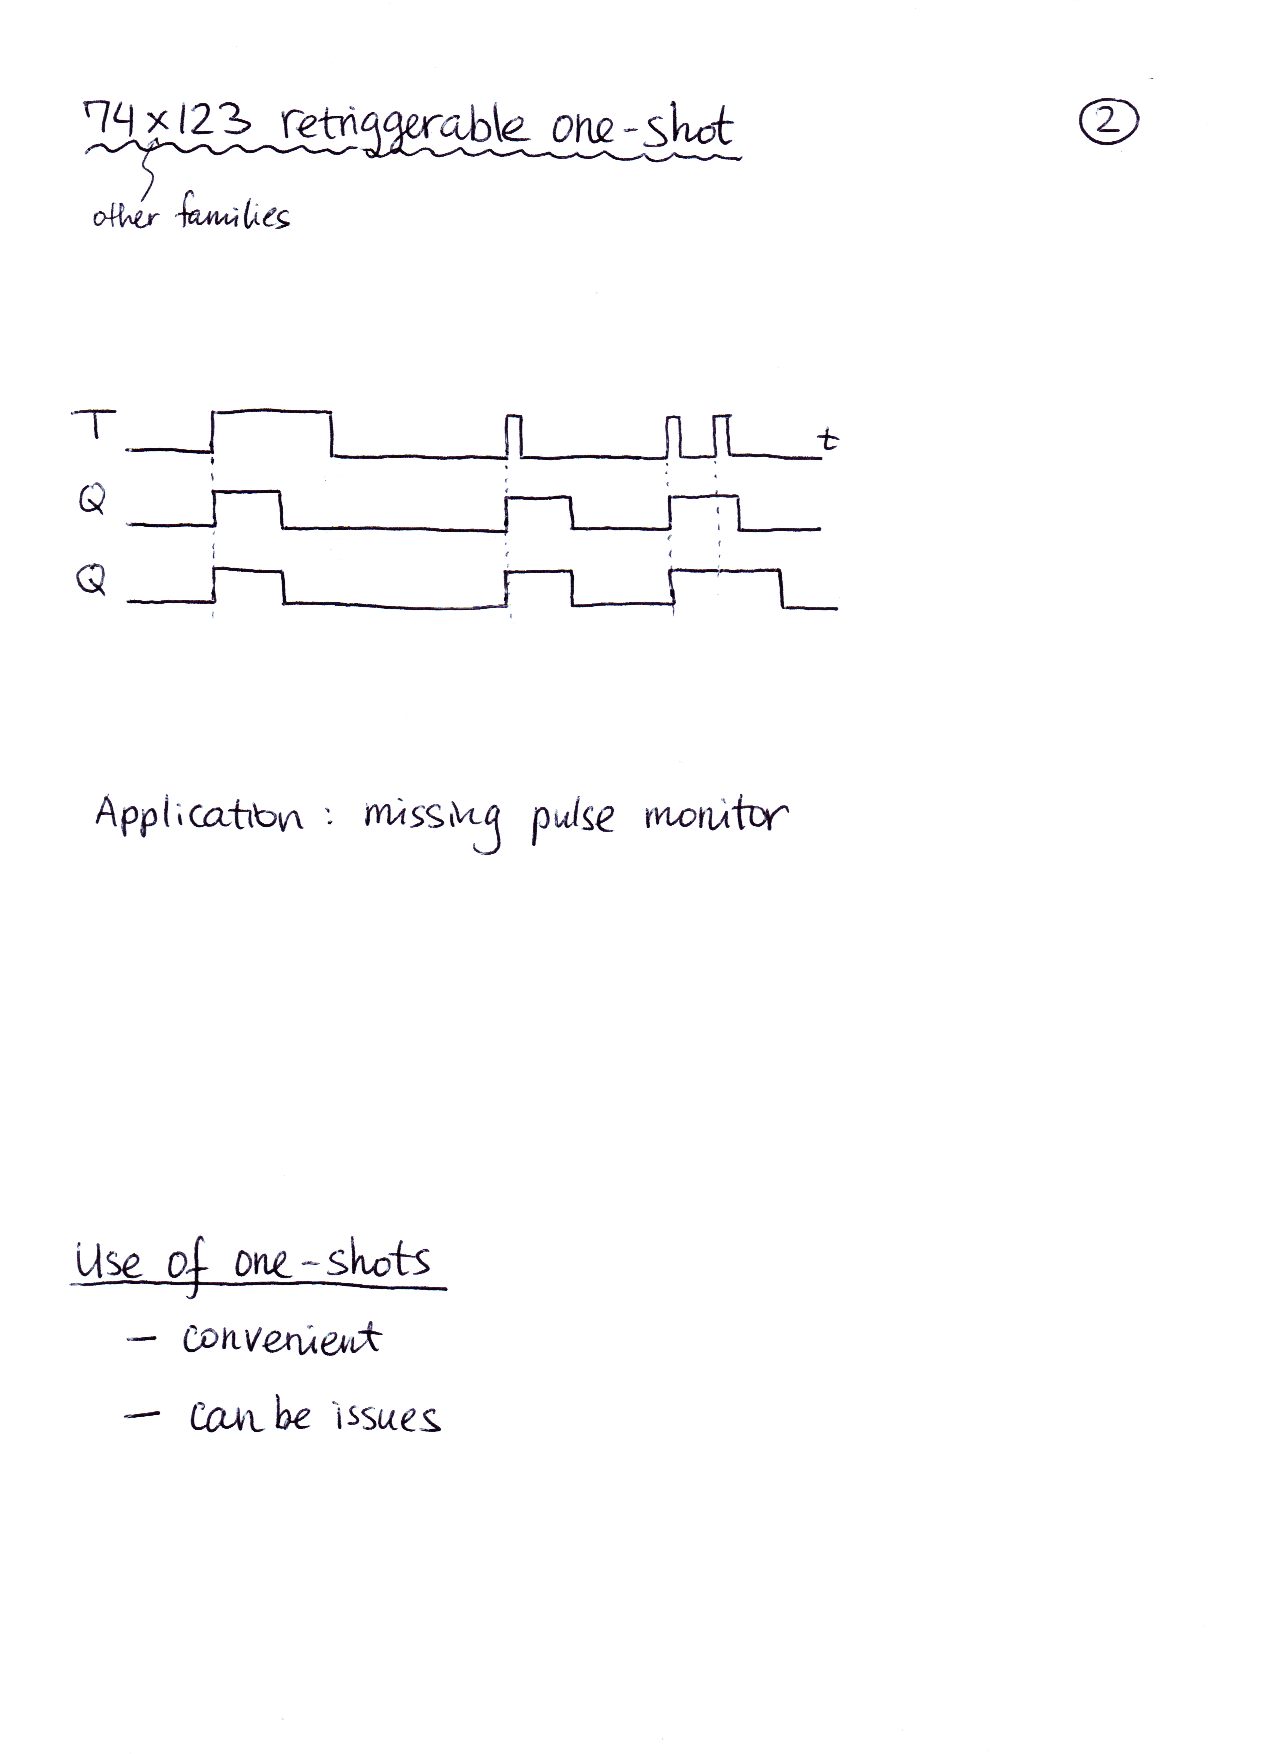 74x123 retriggerable one-shot
2
other families
T
t
Q
Q
Application: missing pulse monitor
Use of one-shots
- convenient
- can be issues